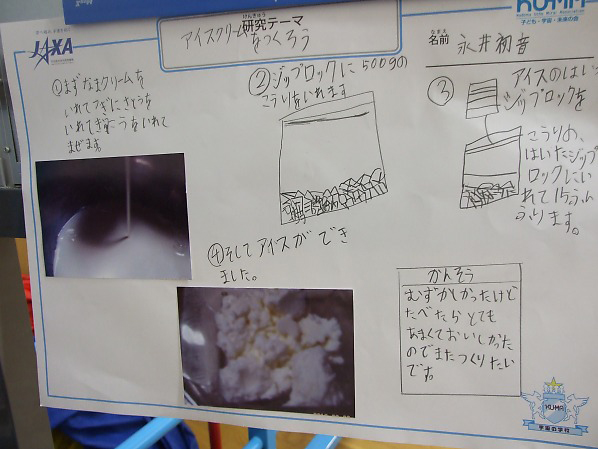 JAXA
KUMA
子ども・宇宙・未来の会
けんきゅう
研究テーマ
アイスクリームをつくろう
なまえ
名前 永井初音
①まずなまクリームを
いれてつぎにさとうを
いれてぎ
まぜます。
②ジップロックに500gの
こうりをいれます
③
アイスのはいった
ジップロックを
こうりの
はいたジップ
ロックにい
れて15ふん
ふります。
④そしてアイスができ
ました。
かんそう
むずかしかったけど
たべたらとても
あまくておいしかった
のでまたつくりたい
です。
KUMA
宇宙の学校